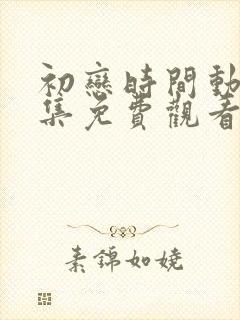 初戀時間動
集免費觀看
素錦如嬈